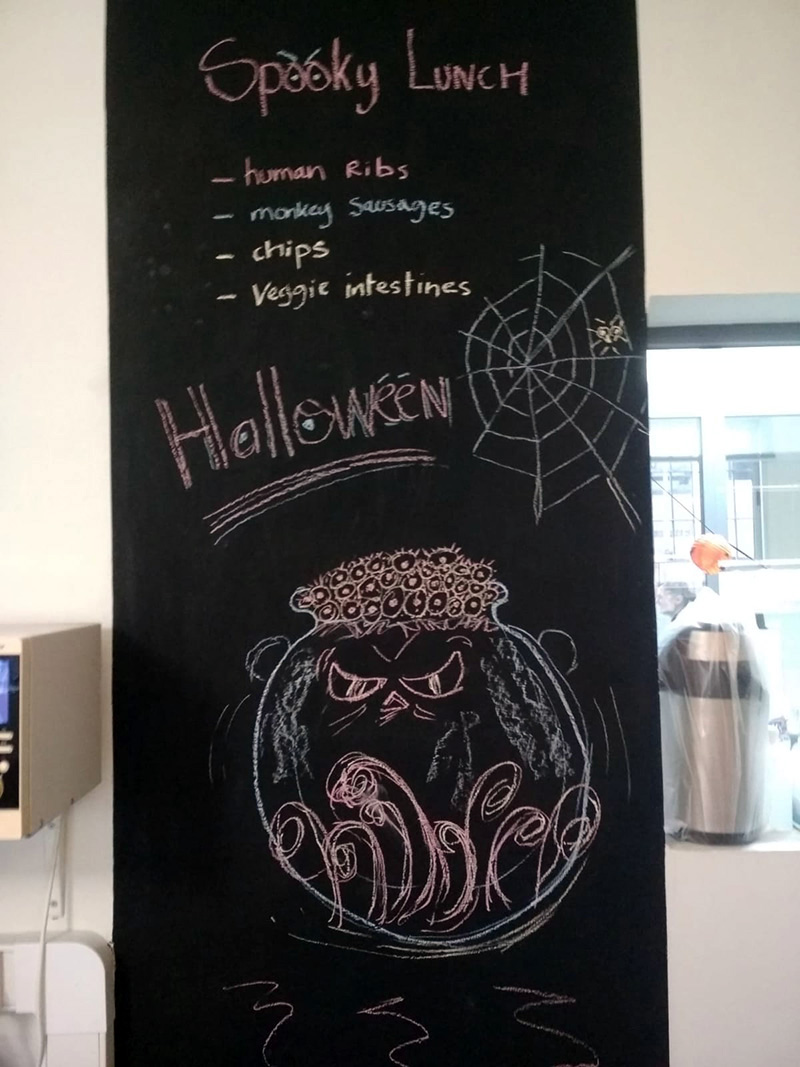 Spooky Lunch
- human Ribs
- monkey Sausages
- chips
- Veggie intestines
Halloween